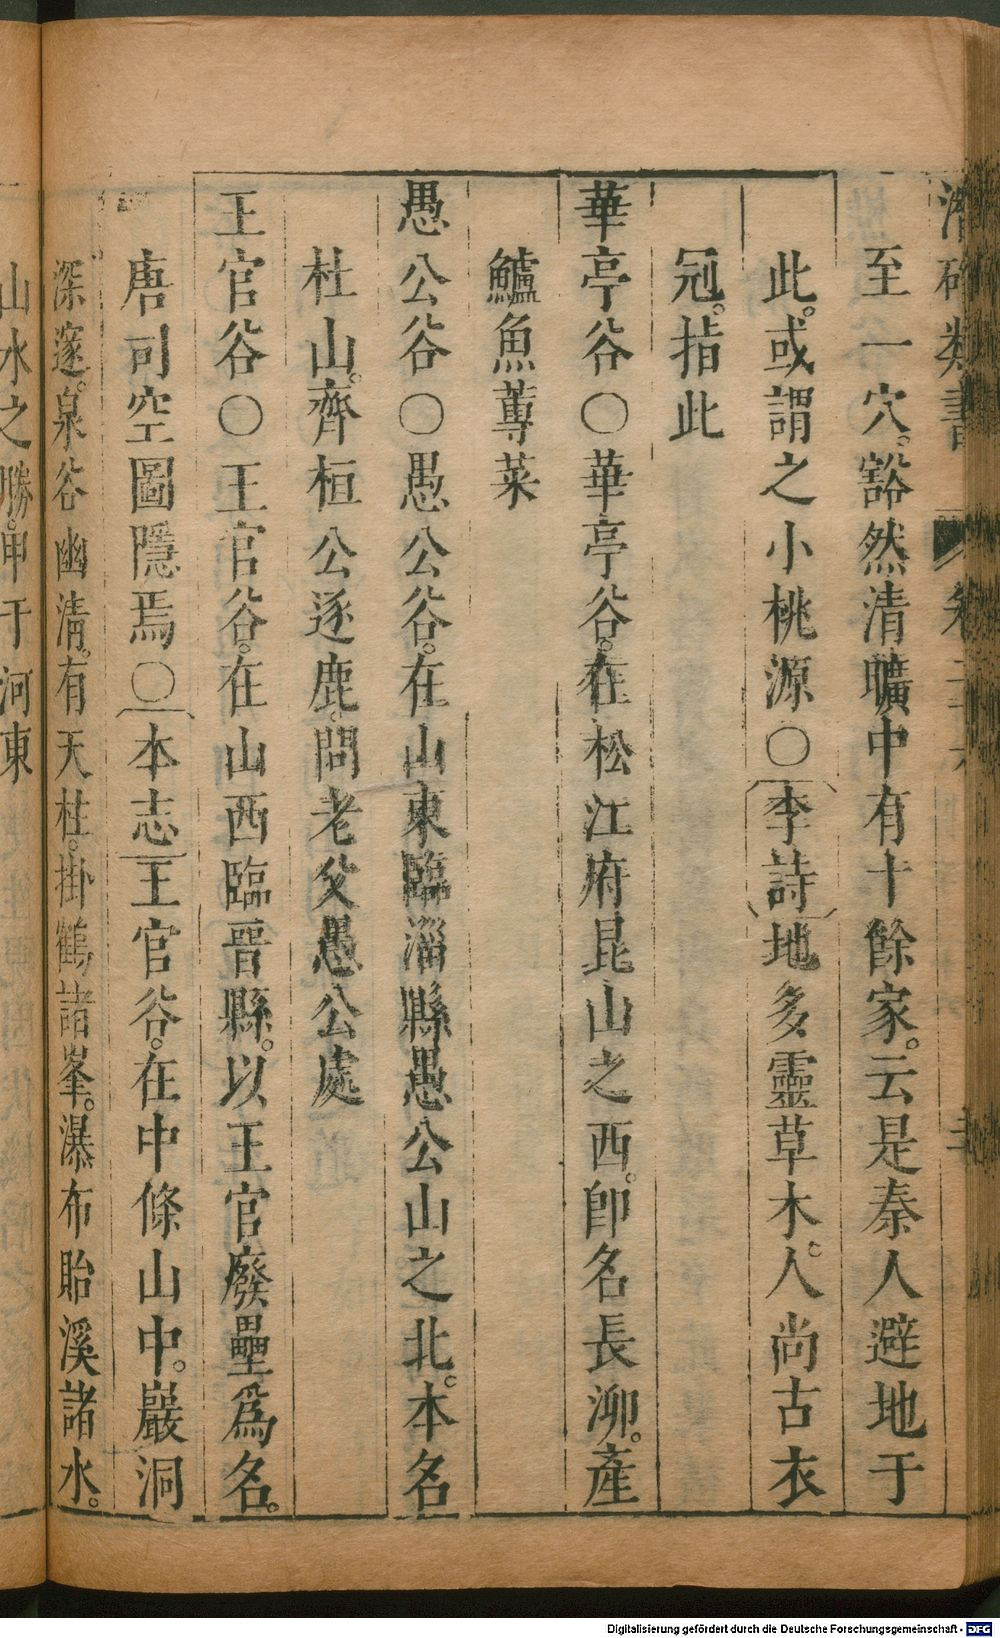 潛確類書 卷二十六
至一穴。豁然清曠中有十餘家。云是秦人避地于
此。或謂之小桃源〇李詩地多靈草木。人尚古衣
冠。指此
華亭谷〇華亭谷。在松江府昆山之西。卽名長泖。產
鱸魚蓴菜
愚公谷〇愚公谷。在山東臨淄縣愚公山之北。本名
杜山。齊桓公逐鹿。問老父愚公處
王官谷〇王官谷。在山西臨晉縣。以王官廢壘爲名。
唐司空圖隱焉〇本志王官谷。在中條山中。巖洞
深邃。泉谷幽清。有天柱。掛鶴諸峯。瀑布貽溪諸水。
山水之勝。甲于河東
Digitalisierung gefördert durch die Deutsche Forschungsgemeinschaft - DFG